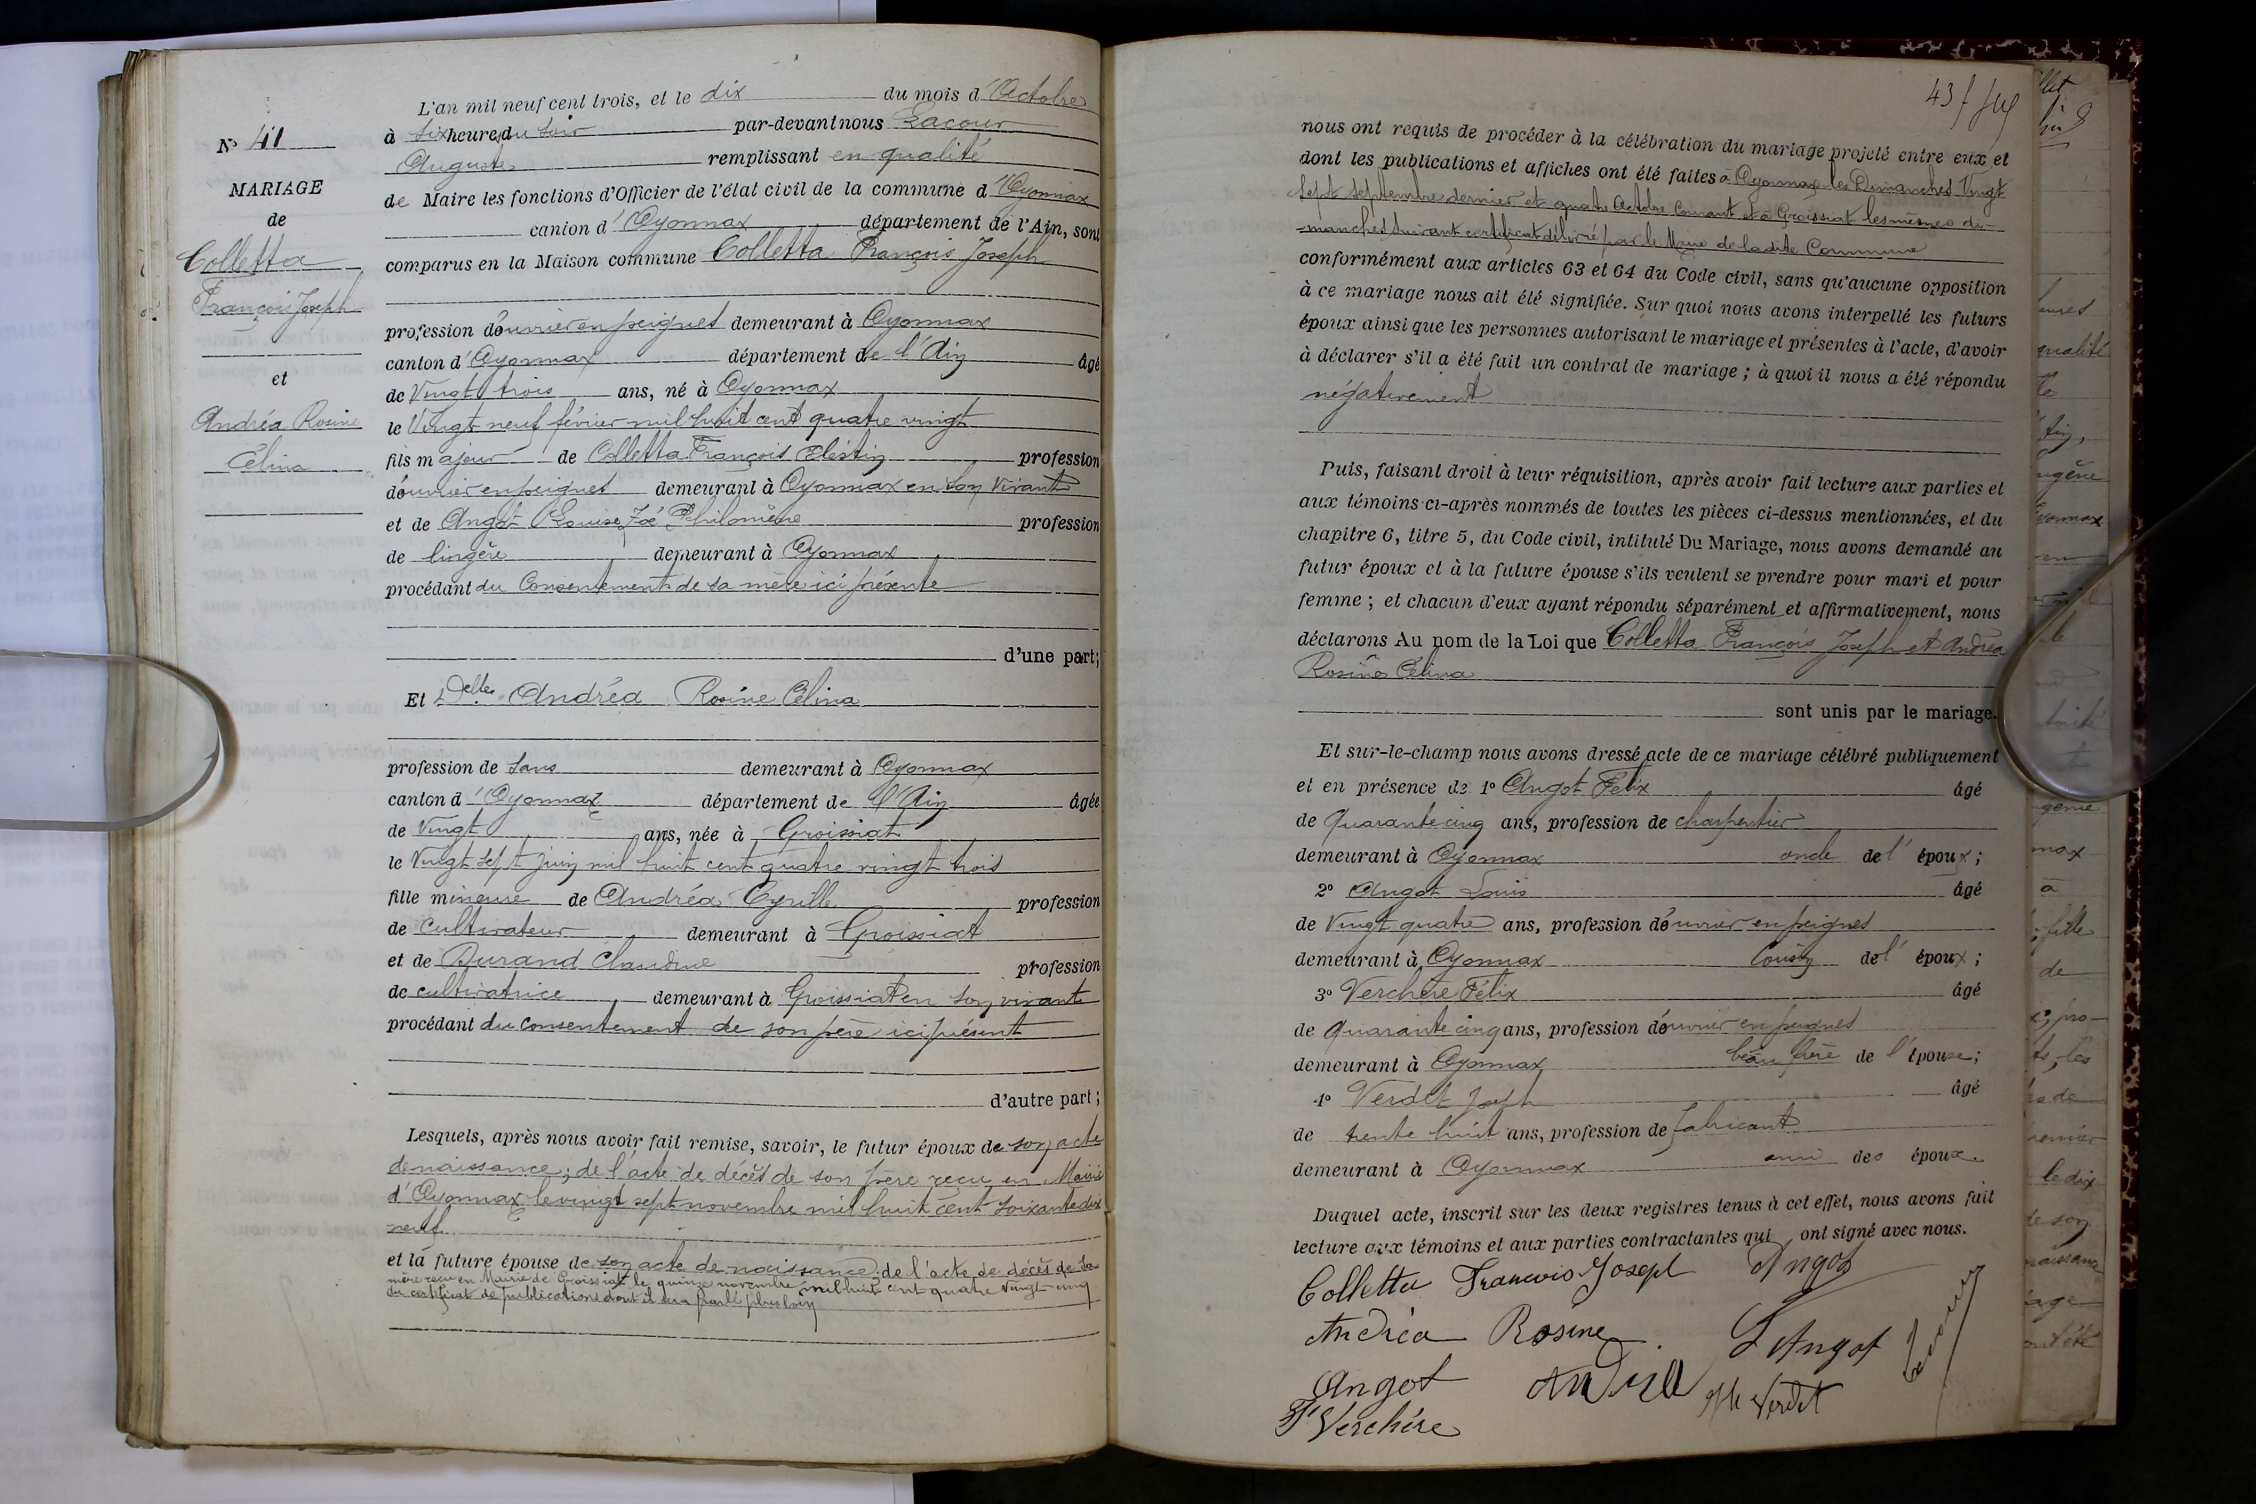 N° 41
MARIAGE
de
Colletta
François Joseph
et
Andréa Rosine
Célina
L'an mil neuf cent trois, et le dix du mois d'Octobre
à six heures du soir par-devant nous Lacour
Auguste remplissant en qualité
de Maire les fonctions d'Officier de l'état civil de la commune d'Oyonnax
canton d'Oyonnax département de l'Ain, sont
comparus en la Maison commune Colletta François Joseph
profession d'ouvrier en peignes demeurant à Oyonnax
canton d'Oyonnax département de l'Ain âgé
de Vingt trois ans, né à Oyonnax
le Vingt neuf février mil huit cent quatre vingt
fils majeur de Colletta François Célestin profession
d'ouvrier en peignes demeurant à Oyonnax en son vivant
et de Angot Louise Zoé Philomène profession
de lingère demeurant à Oyonnax
procédant du Consentement de sa mère ici présente
d'une part;
Et Delle Andréa Rosine Célina
profession de sans demeurant à Oyonnax
canton d'Oyonnax département de l'Ain âgée
de Vingt ans, née à Groissiat
le Vingt sept juin mil huit cent quatre vingt trois
fille mineure de Andréa Cyrille profession
de Cultivateur demeurant à Groissiat
et de Durand Claudine profession
de cultivatrice demeurant à Groissiat en son vivant
procédant du consentement de son père ici présent
d'autre part;
Lesquels, après nous avoir fait remise, savoir, le futur époux de son acte
de naissance; de l'acte de décès de son père reçu en Mairie
d'Oyonnax le vingt sept novembre mil huit cent soixante dix
neuf
et la future épouse de son acte de naissance; de l'acte de décès de sa
mère reçu en Mairie de Groissiat le quinze novembre mil huit cent quatre vingt cinq
du certificat de publications dont il sera parlé plus loin
43
nous ont requis de procéder à la célébration du mariage projeté entre eux et
dont les publications et affiches ont été faites à Oyonnax les Dimanches Vingt
Sept septembre dernier et quatre Octobre Courant et à Groissiat les mêmes di-
-manches suivant certificat délivré par le Maire de ladite Commune
conformément aux articles 63 et 64 du Code civil, sans qu'aucune opposition
à ce mariage nous ait été signifiée. Sur quoi nous avons interpellé les futurs
époux ainsi que les personnes autorisant le mariage et présentes à l'acte, d'avoir
à déclarer s'il a été fait un contrat de mariage; à quoi il nous a été répondu
négativement
Puis, faisant droit à leur réquisition, après avoir fait lecture aux parties et
aux témoins ci-après nommés de toutes les pièces ci-dessus mentionnées, et du
chapitre 6, titre 5, du Code civil, intitulé Du Mariage, nous avons demandé au
futur époux et à la future épouse s'ils veulent se prendre pour mari et pour
femme; et chacun d'eux ayant répondu séparément et affirmativement, nous
déclarons Au nom de la Loi que Colletta François Joseph et Andréa
Rosine Célina
sont unis par le mariage.
Et sur-le-champ nous avons dressé acte de ce mariage célébré publiquement
et en présence de 1° Angot Félix âgé
de Quarante cinq ans, profession de charpentier
demeurant à Oyonnax oncle de l'époux;
2° Angot Louis âgé
de Vingt quatre ans, profession d'ouvrier en peignes
demeurant à Oyonnax Cousin de l'époux;
3° Verchère Félix âgé
de Quarante cinq ans, profession d'ouvrier en peignes
demeurant à Oyonnax beau frère de l'épouse;
4° Verdet Joseph âgé
de trente huit ans, profession de fabricant
demeurant à Oyonnax ami des époux.
Duquel acte, inscrit sur les deux registres tenus à cet effet, nous avons fait
lecture aux témoins et aux parties contractantes qui ont signé avec nous.
Colletta François Joseph Angot
Andréa Rosine L Angot
Angot Andréa Verdet
F Verchère